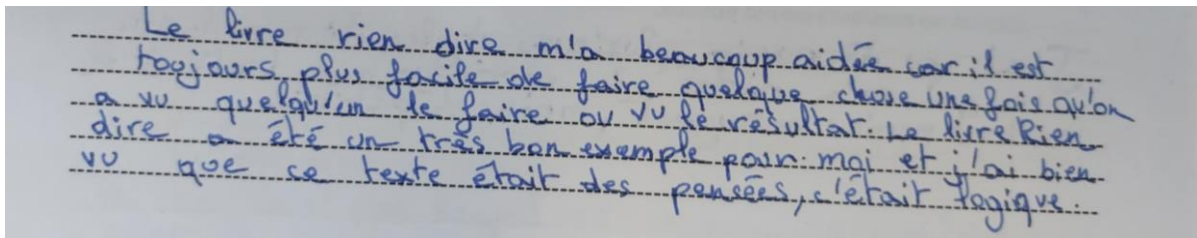 Le livre rien dire m'a beaucoup aidée car il est
toujours plus facile de faire quelque chose une fois qu'on
a vu quelqu'un le faire ou vu le résultat. Le livre Rien
dire a été un très bon exemple pour moi et j'ai bien
vu que ce texte était des pensées, c'était logique.